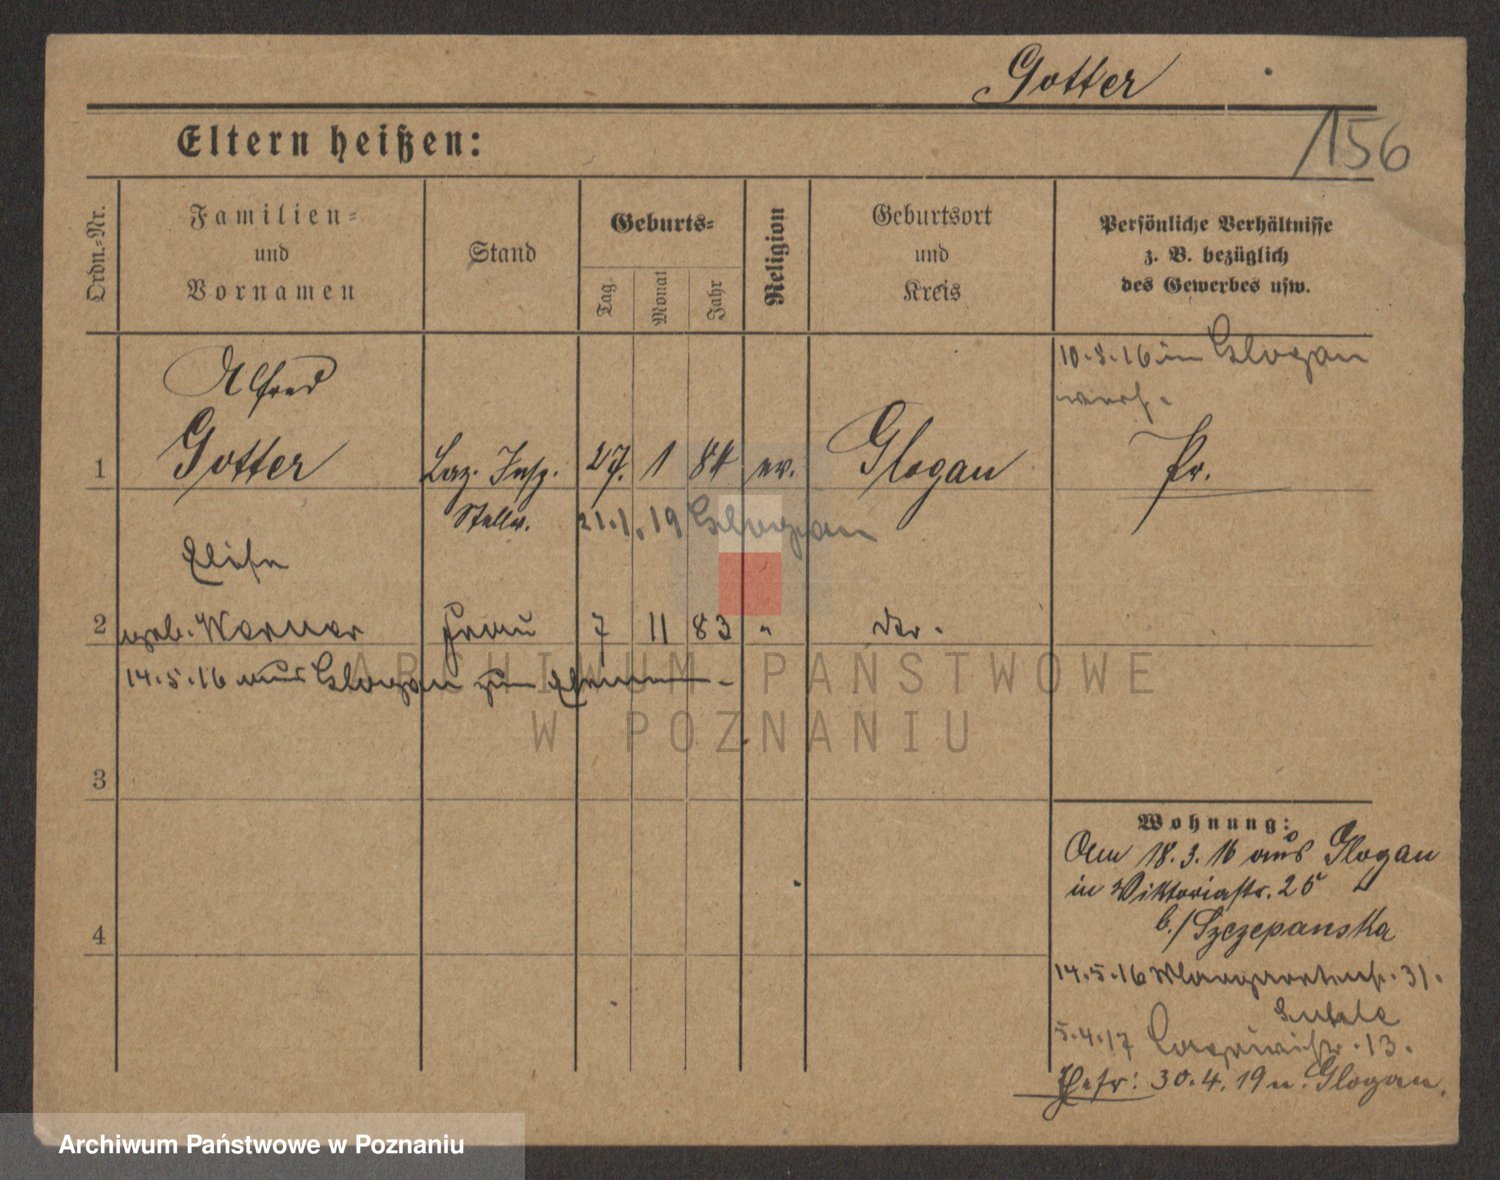 Gotter
156
Eltern heißen:
Ordn.-Nr.
Familien-
und
Vornamen
Stand
Geburts-
Tag
Monat
Jahr
Religion
Geburtsort
und
Kreis
Persönliche Verhältnisse
z. B. bezüglich
des Gewerbes usw.
10.3.16 in Glogau
Alfred
1 Gotter Laz. Insp. 27. 1 84 ev. Glogau Pr.
Stellv. 21.1.19 Glogau
Elise
2 geb. Werner Frau 7 11 83 " der.
14.5.16 aus Glogau zum
3
4
Wohnung:
Am 18.3.16 aus Glogau
in Viktoriastr. 25
b./Szczepanska
14.5.16 31.
5.4.17 13.
Hefr: 30.4.19 n. Glogau.
ARCHIWUM PAŃSTWOWE
W POZNANIU
Archiwum Państwowe w Poznaniu